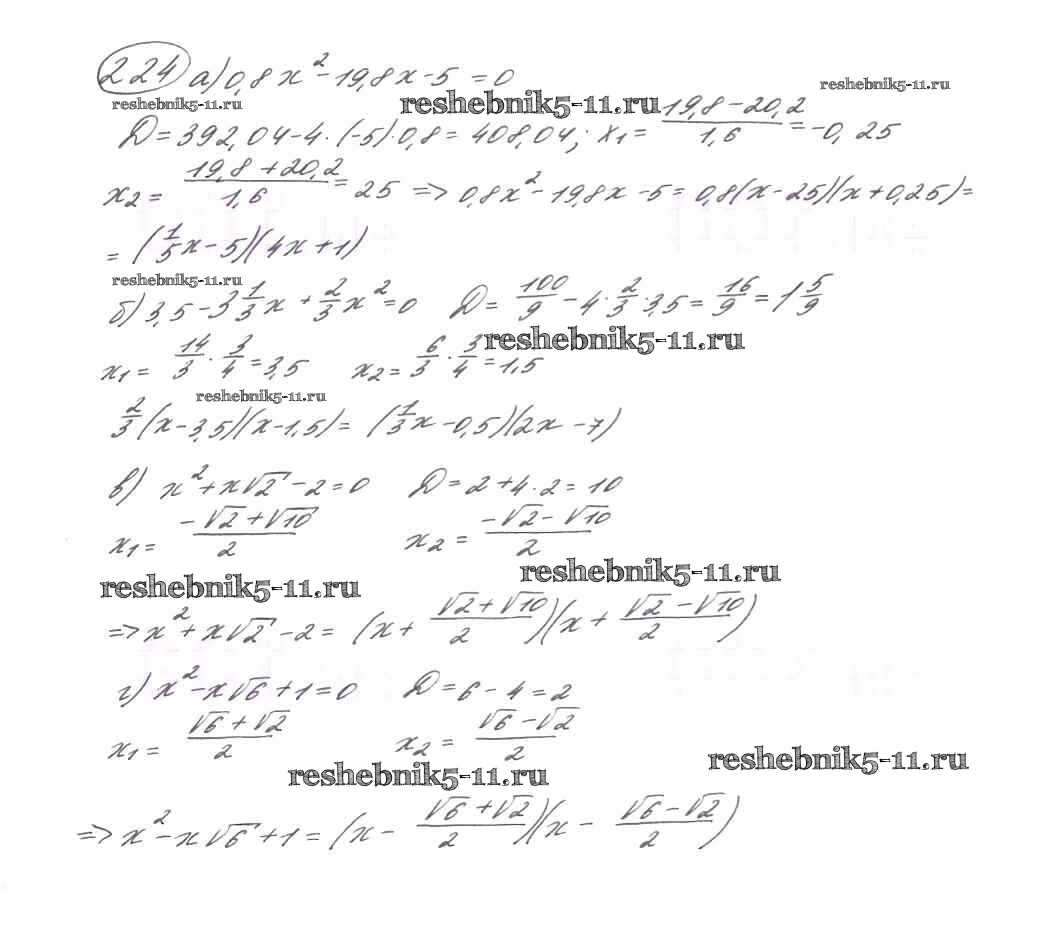 224 а) 0,8x² - 19,8x - 5 = 0
reshebnik5-11.ru reshebnik5-11.ru reshebnik5-11.ru
D = 392,04 - 4·(-5)·0,8 = 408,04; x₁ = (19,8 - 20,2)/1,6 = -0,25
x₂ = (19,8 + 20,2)/1,6 = 25 => 0,8x² - 19,8x - 5 = 0,8(x - 25)(x + 0,25) =
= (1/5 x - 5)(4x + 1)
reshebnik5-11.ru
б) 3,5 - 3 1/3 x + 2/3 x² = 0 D = 100/9 - 4·2/3·3,5 = 16/9 = 1 5/9
reshebnik5-11.ru
x₁ = 14/3 · 3/4 = 3,5 x₂ = 6/3 · 3/4 = 1,5
reshebnik5-11.ru
2/3 (x - 3,5)(x - 1,5) = (1/3 x - 0,5)(2x - 7)
в) x² + x√2 - 2 = 0 D = 2 + 4·2 = 10
x₁ = (-√2 + √10)/2 x₂ = (-√2 - √10)/2
reshebnik5-11.ru reshebnik5-11.ru
=> x² + x√2 - 2 = (x + (√2 + √10)/2)(x + (√2 - √10)/2)
г) x² - x√6 + 1 = 0 D = 6 - 4 = 2
x₁ = (√6 + √2)/2 x₂ = (√6 - √2)/2
reshebnik5-11.ru reshebnik5-11.ru
=> x² - x√6 + 1 = (x - (√6 + √2)/2)(x - (√6 - √2)/2)